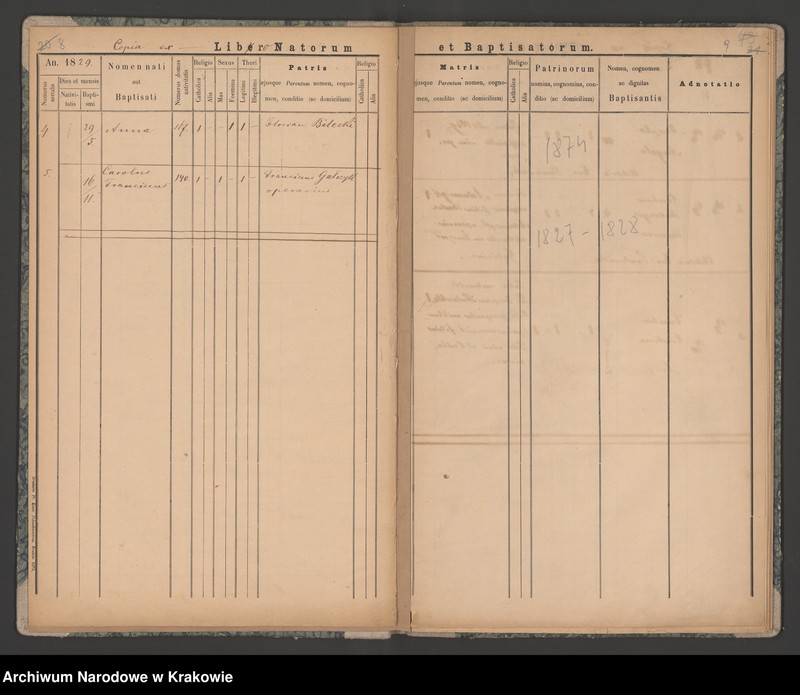 8
Copia ex Libro Natorum
An. 1829.
Numerus serialis
Dies et mensis
Nativitatis
Baptismi
Nomen nati
aut
Baptisati
Numerus domus nativitatis
Religio
Catholica
Alia
Sexus
Mas
Femina
Thori
Legitimi
Illegitimi
Patris
ejusque Parentum nomen, cognomen, conditio (ac domicilium)
Religio
Catholica
Alia
4 29/5 Anna 1 1 1 Florian Bilecki
5. 16/11. Carolus 190. 1 - 1 - 1 - Franciscus
Franciscus operarius
et Baptisatorum.
9
24
Matris
ejusque Parentum nomen, cognomen, conditio (ac domicilium)
Religio
Catholica
Alia
Patrinorum
nomina, cognomina, conditio (ac domicilium)
Nomen, cognomen
ac dignitas
Baptisantis
Adnotatio
1874
1827 - 1828
Archiwum Narodowe w Krakowie